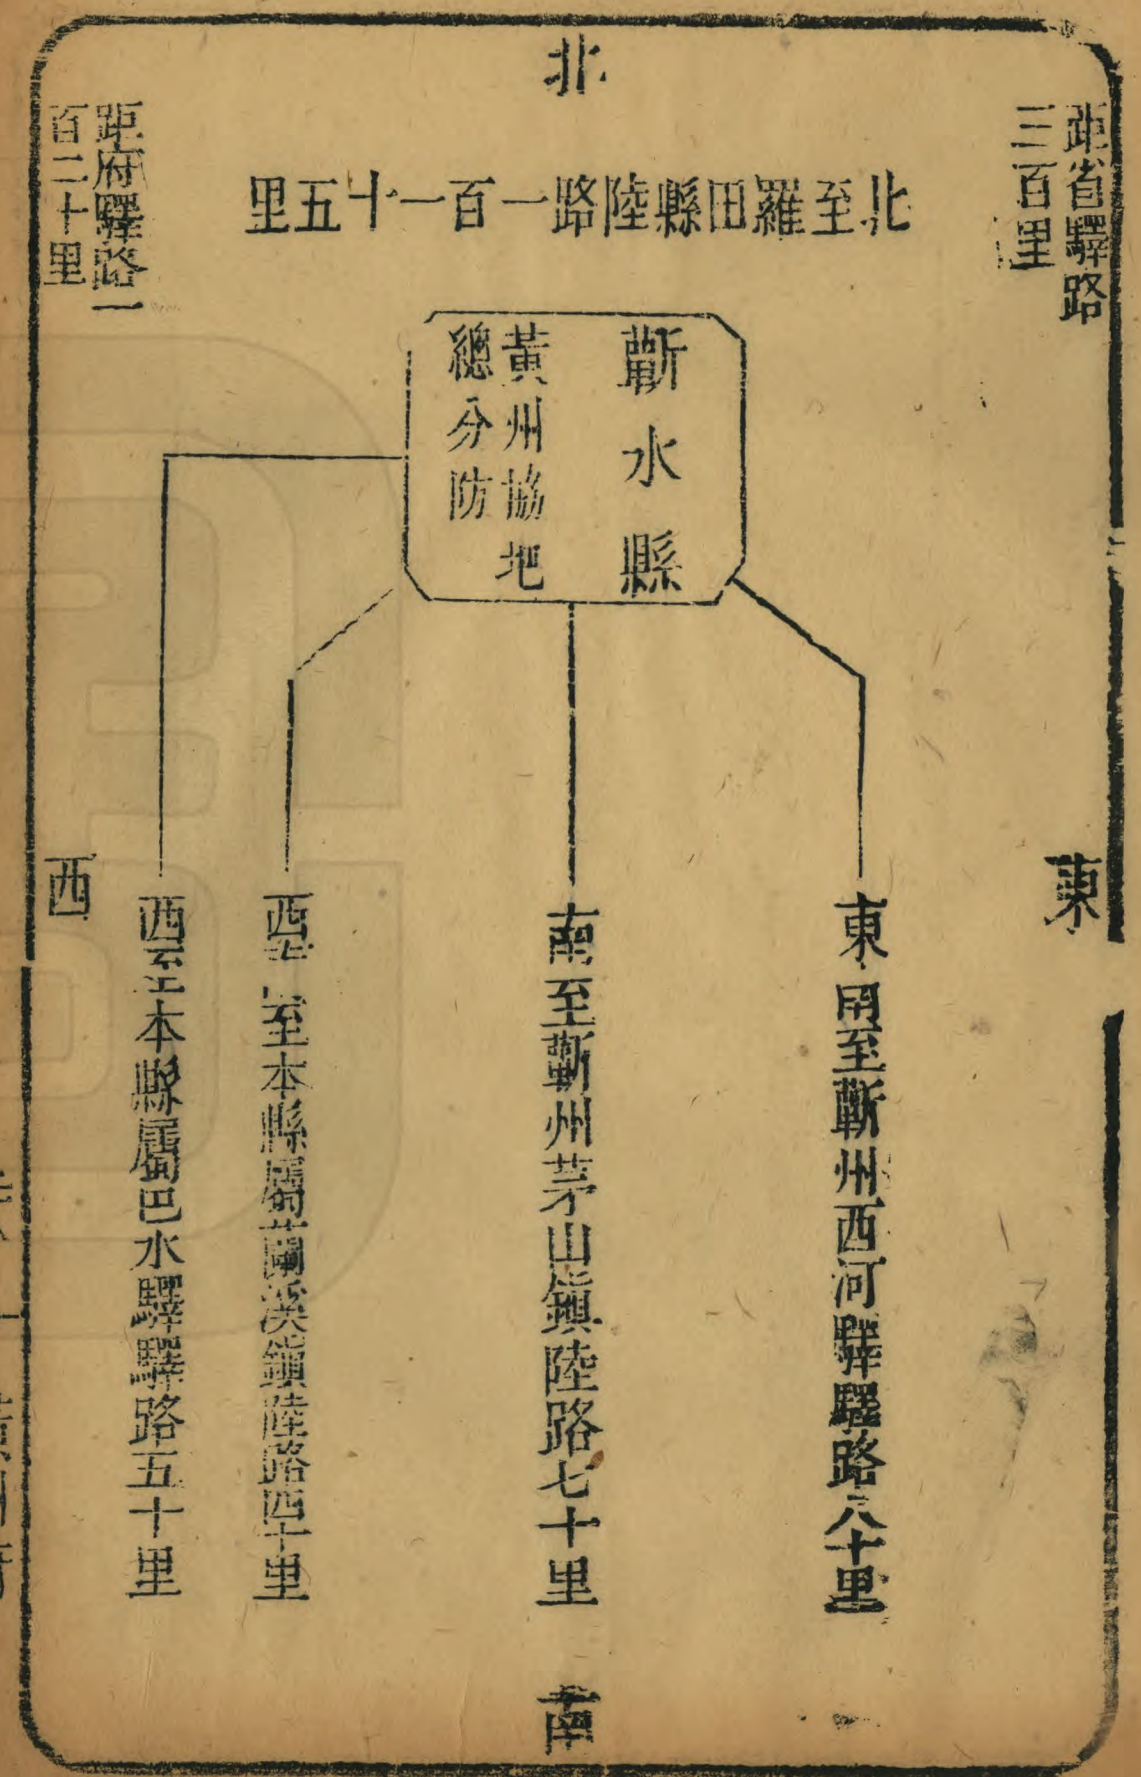 北
距省驛路
三百里
北至羅田縣陸路一百一十五里
距府驛路一
百二十里
蘄水縣
黃州協把
總分防
東
東南至蘄州西河驛驛路八十里
南至蘄州茅山鎮陸路七十里
西南至本縣屬蘭溪鎮陸路四十里
西至本縣屬巴水驛驛路五十里
西
南